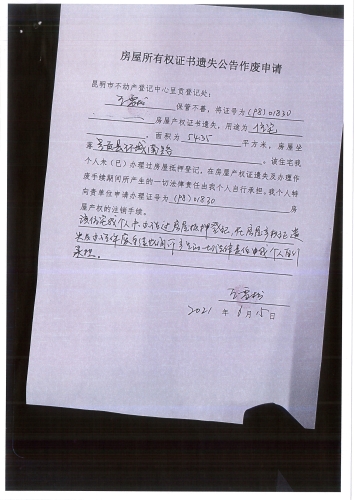 房屋所有权证书遗失公告作废申请
昆明市不动产登记中心呈贡登记处:
保管不善,将证号为 (98)01830
房屋产权证书遗失,用途为 住宅
,面积为 54.35 平方米,房屋坐
落 呈贡县环城南路 ,该住宅我
个人未(已)办理过房屋抵押登记。在房屋产权证遗失及办理作
废手续期间所产生的一切法律责任由我个人自行承担。我个人特
向贵单位申请办理证号为 (98)01830 房
屋产权的注销手续。
该住宅我个人未办理过房屋抵押登记,在房屋产权证遗
失及办理作废手续期间所产生的一切法律责任由我个人自行
承担。
2021 年 3 月 15 日